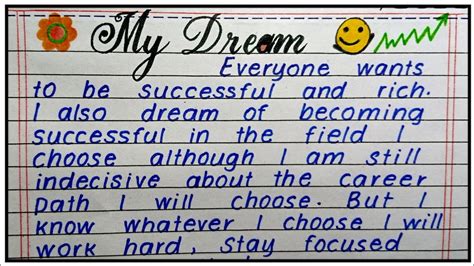 My Dream
Everyone wants
to be successful and rich.
I also dream of becoming
successful in the field I
choose although I am still
indecisive about the career
path I will choose. But I
know whatever I choose I will
work hard, stay focused